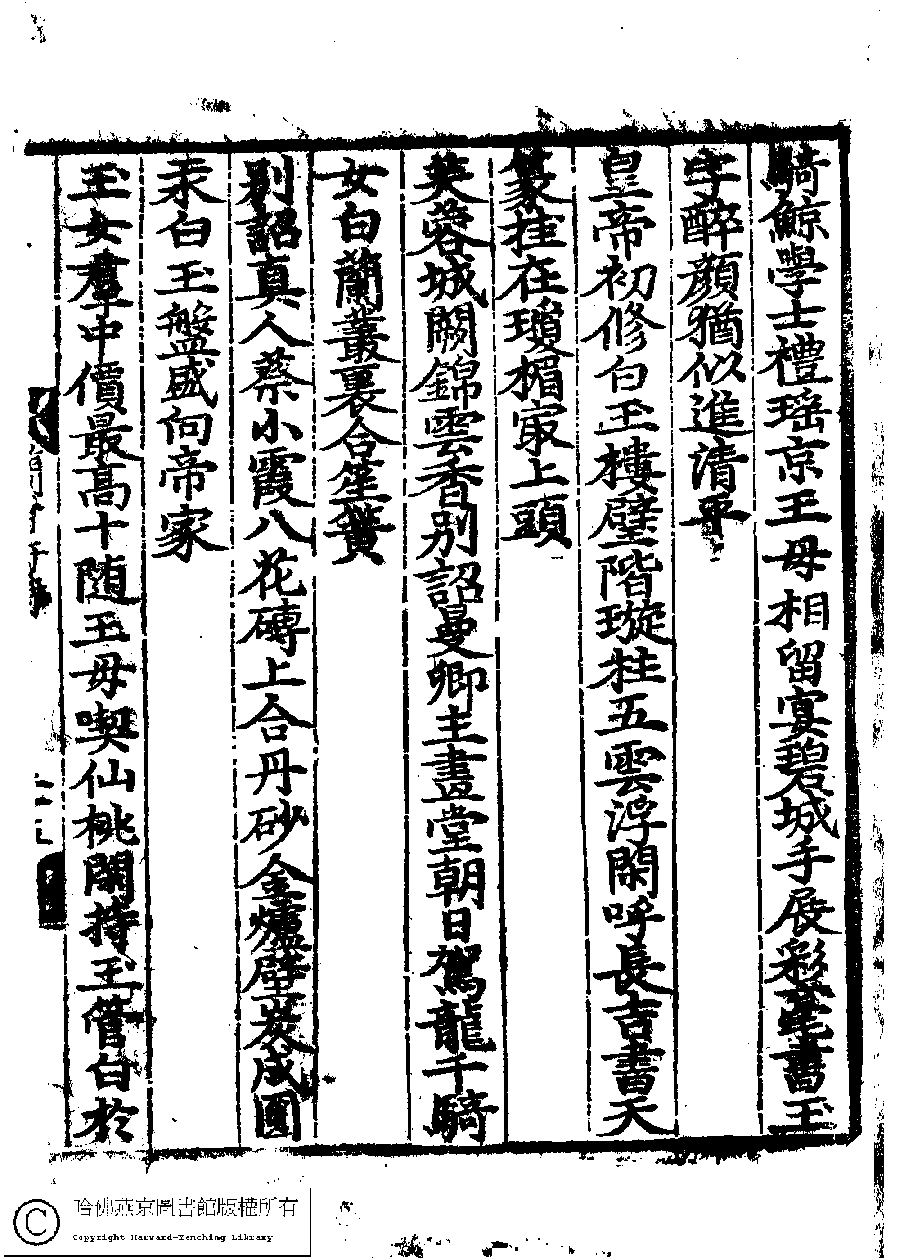 騎鯨學士禮瑶京王母相留宴碧城手展彩毫書玉
字醉顔猶似進清平
皇帝初修白玉樓璧階璇柱五雲浮閑呼長吉書天
篆挂在瓊楣㝡上頭
芙蓉城闕錦雲香別詔曼卿主畫堂朝日駕龍千騎
女白蘭叢裏合笙簧
別詔真人蔡小霞八花磚上合丹砂金爐壁炭成圓
汞白玉盤盛向帝家
玉女羣中價最高十随王母喫仙桃閑持玉管白於
哈佛燕京圖書館版權所有
Copyright Harvard-Yenching Library